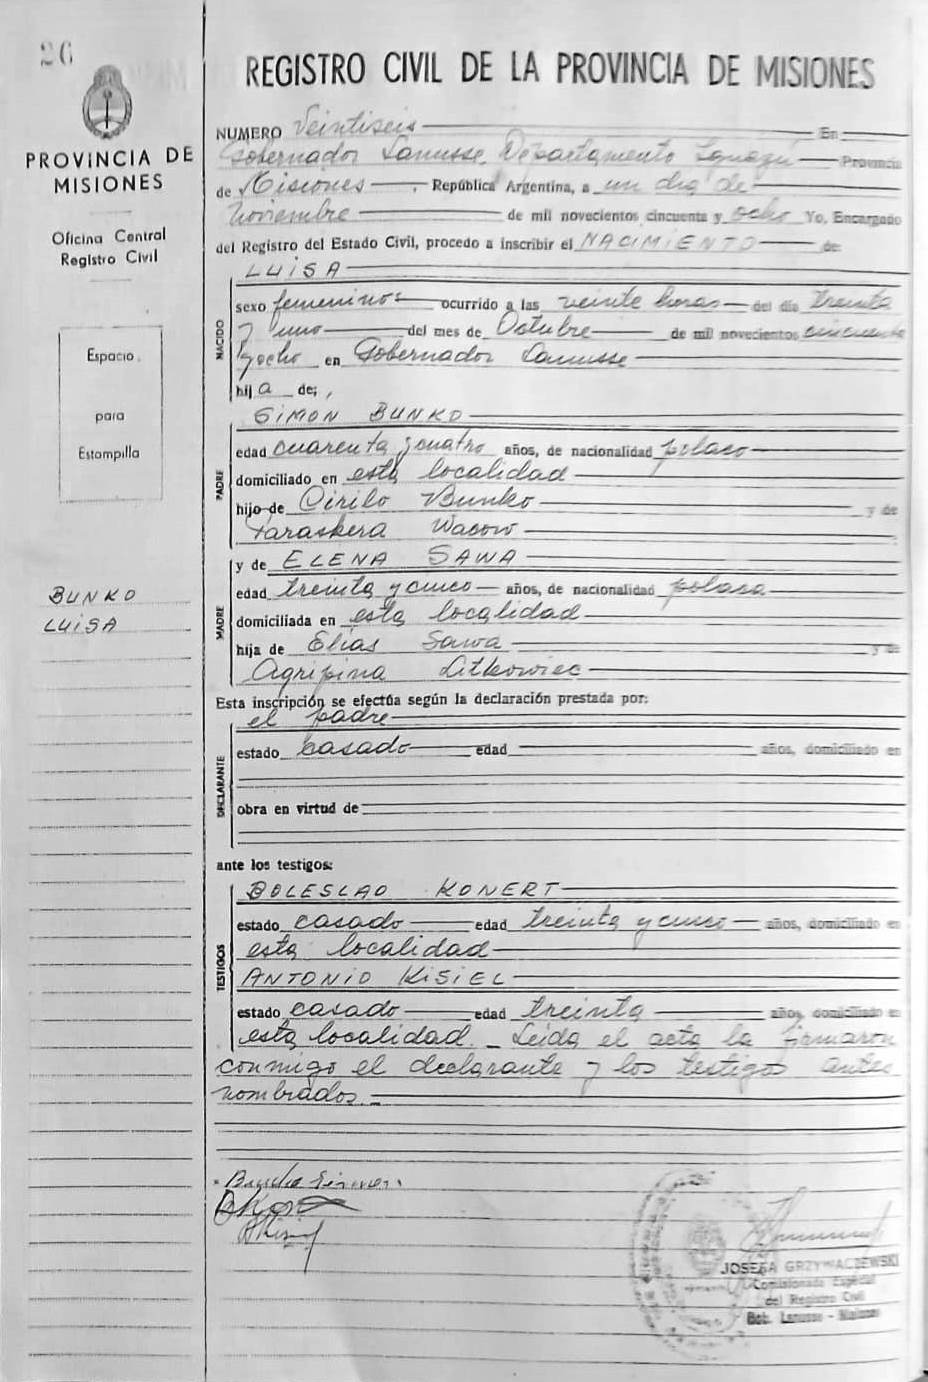 26
PROVINCIA DE
MISIONES
Oficina Central
Registro Civil
Espacio
para
Estampilla
BUNKO
LUISA
REGISTRO CIVIL DE LA PROVINCIA DE MISIONES
NUMERO Veintiseis En
Gobernador Lanusse Departamento Iguazú Provincia
de Misiones, República Argentina, a un dia de
Noviembre de mil novecientos cincuenta y ocho Yo, Encargado
del Registro del Estado Civil, procedo a inscribir el NACIMIENTO de
LUISA
NACIDO
sexo femenino ocurrido a las veinte horas del día treinta
y uno del mes de Octubre de mil novecientos cincuenta
y ocho en Gobernador Lanusse
hija de;
PADRE
SIMON BUNKO
edad cuarenta y cuatro años, de nacionalidad polaco
domiciliado en esta localidad
hijo de Cirilo Bunko y de
Paraskera Wacow
MADRE
y de ELENA SAWA
edad treinta y cinco años, de nacionalidad polaca
domiciliada en esta localidad
hija de Elias Sawa y de
Agripina Litkowiec
Esta inscripción se efectúa según la declaración prestada por:
DECLARANTE
el padre
estado casado edad años, domiciliado en
obra en virtud de
ante los testigos:
TESTIGOS
BOLESLAO KONERT
estado casado edad treinta y cinco años, domiciliado en
esta localidad
ANTONIO KISIEL
estado casado edad treinta años, domiciliado en
esta localidad. - Leída el acta la firmaron
conmigo el declarante y los testigos antes
nombrados. -
JOSEFA GRZYWACZEWSKI
Comisionada Especial
del Registro Civil
Gob. Lanusse - Misiones